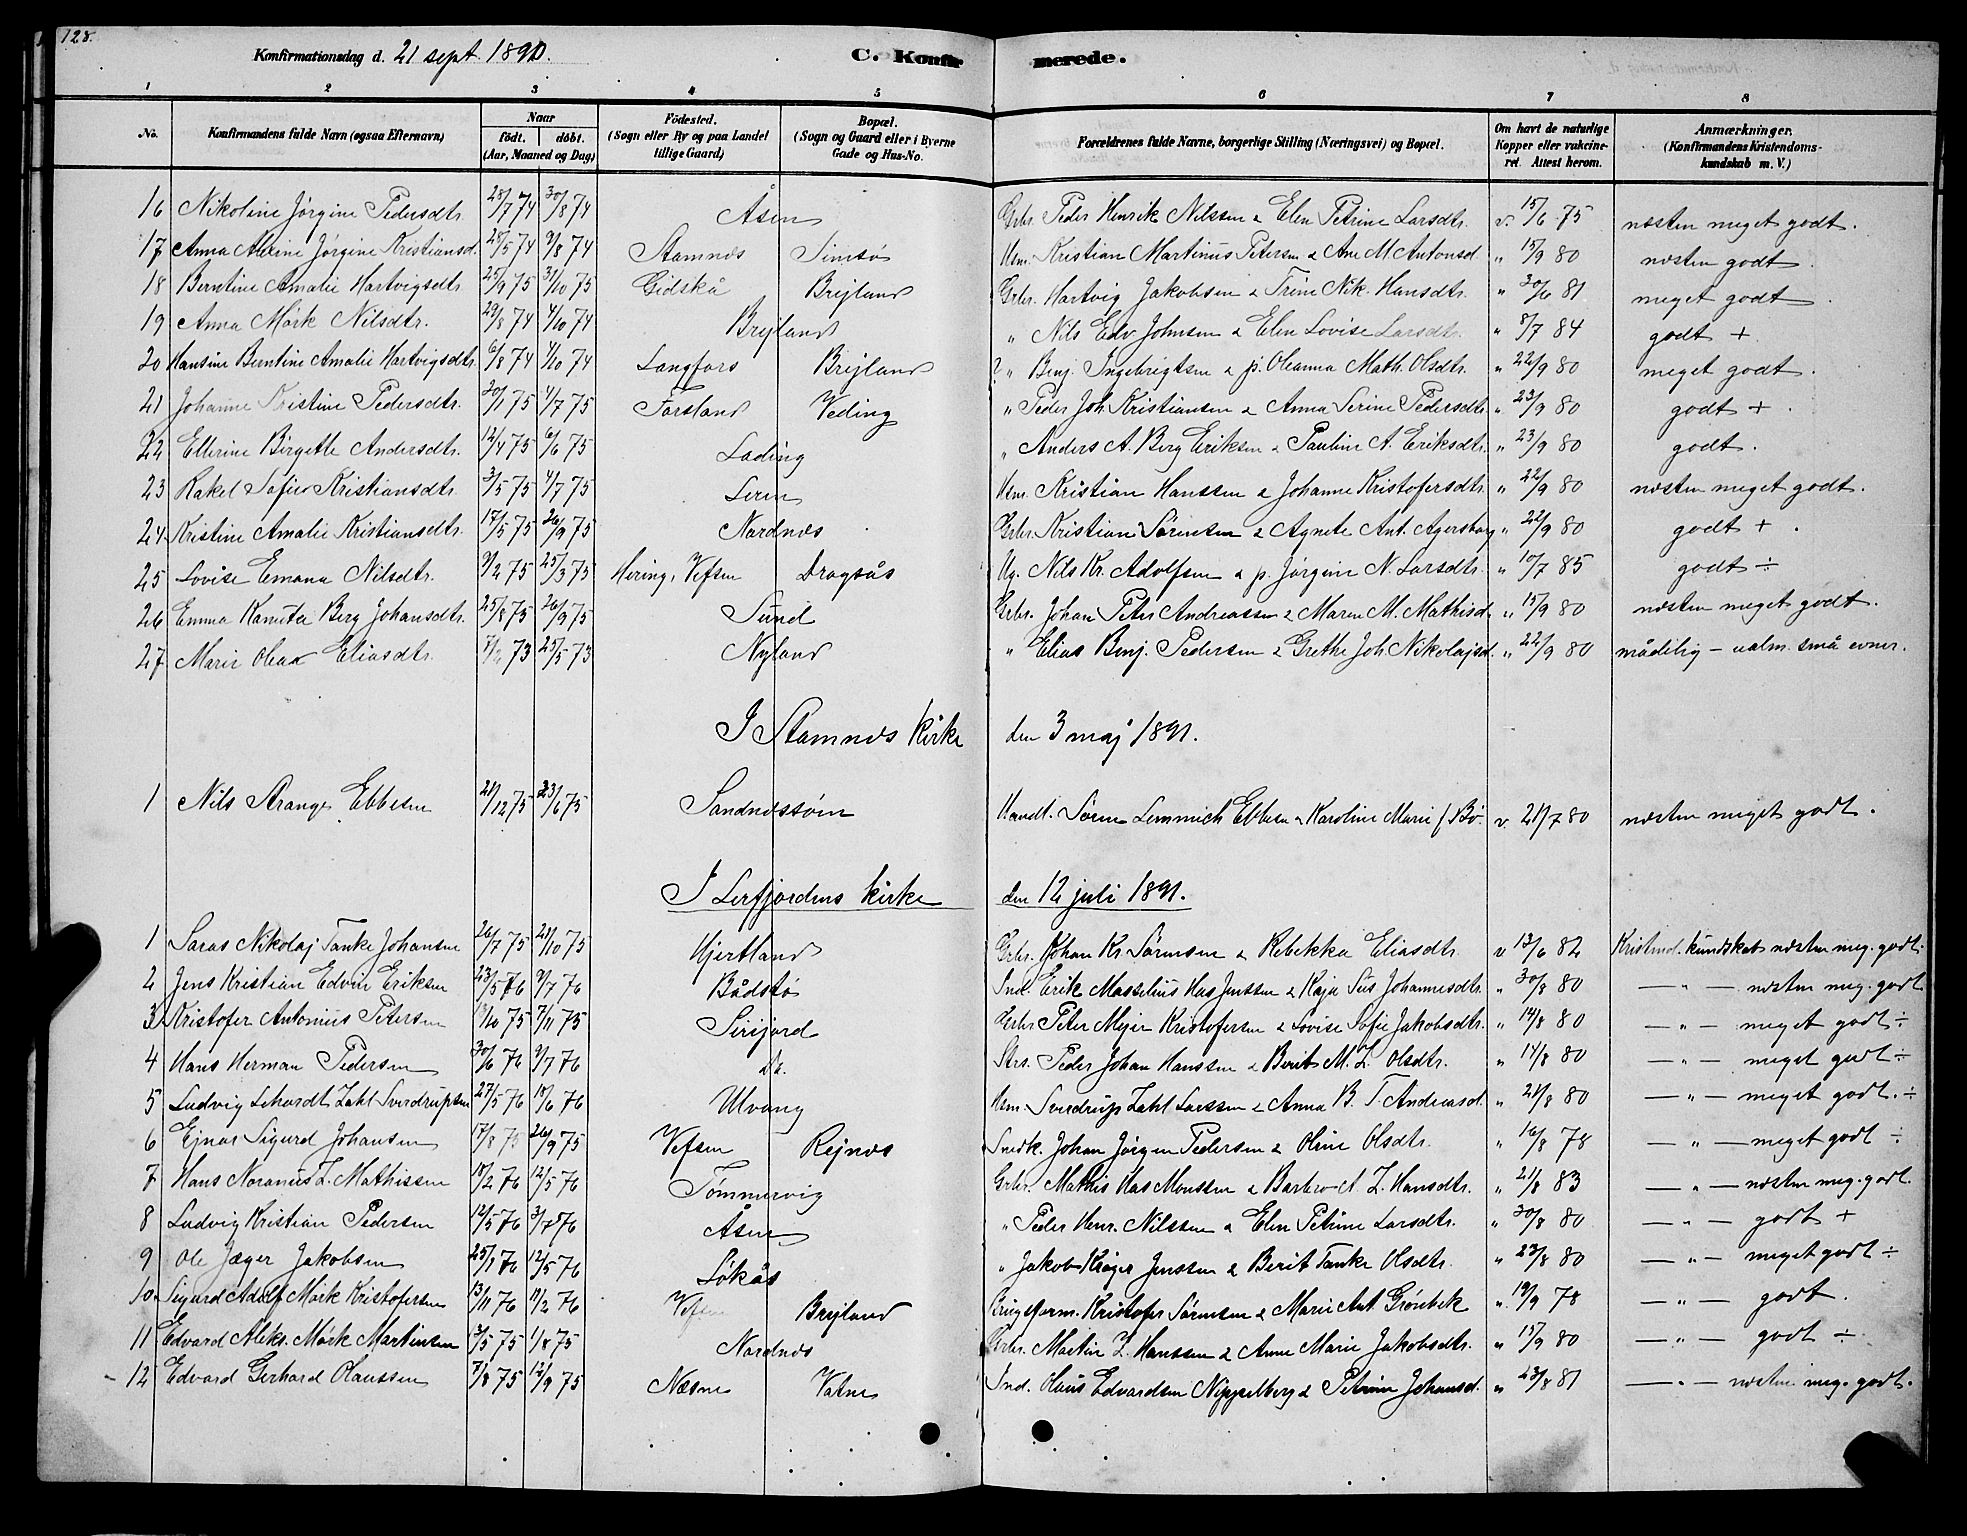 128.
Konfirmationsdag d. 21 sept. 1890. C. Konfirmerede.
1 2 3 4 5 6 7 8
No. Konfirmandens fulde Navn (ogsaa Efternavn) Naar født. døbt. (Aar, Maaned og Dag) Fødested. (Sogn eller By og paa Landet tillige Gaard) Bopæl. (Sogn og Gaard eller i Byerne Gade og Hus-No. Forældrenes fulde Navne, borgerlige Stilling (Næringsvei) og Bopæl. Om havt de naturlige Kopper eller vakcineret. Attest herom. Anmærkninger. (Konfirmandens Kristendomskundskab m. V.)
16 Nikoline Jørgine Pedersdtr. 28/7 74 30/8 74 Åsen Grbr. Peder Henrik Nilssen & Elen Petrine Larsdtr. v. 15/6 75 næsten meget godt.
17 Anna Jørgine Kristiansd. 9/8 74 Stamnes Simsø Hsm. Kristian Martinus Petersen & Ane M. Antonsd. " 15/9 80 næsten godt.
18 Berntine Amalie Hartvigsdtr. 25/9 75 31/10 75 Gidskå Brejland Grbr. Hartvig Jakobsen & Trine Nik. Hansdtr. " 30/6 81 meget godt.
19 Anna Mørk Nilsdtr. 29/8 74 4/10 74 Brejland " Nils Edv. Johnsen & Elen Lovise Larsdtr. " 8/7 84 godt +
20 Hansine Berntine Amalie Hartvigsdtr. 6/8 74 4/10 74 Langfors Brejland ? " Benj. Ingebrigtsen & p. Oleanna Math. Olsdtr. " 22/9 80 meget godt.
21 Johanne Kristine Pedersdtr. 30/1 75 4/7 75 Forsland Veding " Peder Joh. Kristiansen & Anna Serine Pedersdtr. " 23/9 80 godt +.
22 Ellerine Birgette Andersdtr. 12/4 75 6/6 75 Lading " Anders A. Berg Eriksen & Pauline A. Eriksdtr. " 23/9 80 godt.
23 Rakel Sofie Kristiansdtr. 3/5 75 4/7 75 Leren Hsm. Kristian Hanssen & Johanne Kristofersdtr. " 22/9 80 næsten meget godt.
24 Kristine Amalie Kristiansdtr. 17/5 75 26/9 75 Nardnes Grbr. Kristian Sørensen & Agnete Ant. Agersborg " 22/9 80 godt +.
25 Lovise Emana Nilsdtr. 9/2 75 25/3 75 Hering, Vefsen Dragsås Ug. Nils Kr. Adolfsen & p. Jørgine N. Larsdtr. " 10/7 85 godt ÷
26 Emma Kanuta Berg Johansdtr. 25/8 75 26/9 75 Sund Grbr. Johan Peter Andreassen & Maren M. Mathisd. " 15/9 80 næsten meget godt.
27 Marie Oleaa Eliasdtr. 73 25/5 73 Nyland " Elias Benj. Pedersen & Grethe Joh. Nikolajsd. " 22/9 80 mådelig - ualm. små evner.
I Stamnes Kirke den 3 maj 1891.
1 Nils Strange Ebbesen 21/12 75 23/6 75 Sandnessøen Handl. Søren Lemmich Ebbesen & Karoline Marie f. Bø. v. 21/7 80 næsten meget godt.
I Lerfjordens kirke den 12 juli 1891.
1 Saras Nikolaj Tanke Johansen 26/7 75 21/10 75 Hjertland Grbr. Johan Kr. Sørensen & Rebekka Eliasdtr. v 13/6 82 Kristend. kundskab næsten meg. godt.
2 Jens Kristian Edvin Eriksen 23/5 76 9/7 76 Bådstø Ind. Erik Masselius Has Jenssen & Kaja Sus Johannesdtr. " 30/8 80 — " — næsten meg. godt
3 Kristofer Antonius Petersen 13/10 75 7/11 75 Sirijord Grbr. Peter Mejer Kristofersen & Lovise Sofie Jakobsdtr. " 14/8 80 — " — meget godt ÷
4 Hans Herman Pedersen 30/6 76 9/7 76 do. Strs. Peder Johan Hanssen & Berit M. Z. Olsdtr. " 14/8 80 — " — meget godt ÷
5 Ludvig Schardt Zahl Sverdrupsen 27/5 76 18/6 76 Ulvang Hsm. Sverdrup Zahl Larssen & Anna B. T. Andreasd. " 21/8 80 — " — meget godt. ÷
6 Ejnar Sigurd Johansen 17/8 75 26/9 75 Vefsen Rejnes Snedk. Johan Jørgen Pedersen & Oline Olsdtr. " 16/8 78 — " — meget godt ÷
7 Hans Noranus Z. Mathissen 18/2 76 12/5 76 Tømmervig Grbr. Mathis Has Monssen & Barbro A. Z. Hansdtr. " 21/8 83 — " — næsten meg. godt.
8 Ludvig Kristian Pedersen 12/5 76 3/7 76 Åsen " Peder Henr. Nilssen & Elen Petrine Larsdtr. " 30/8 80 — " — godt +
9 Ole Jæger Jakobsen 25/1 76 12/5 76 Løkås " Jakob Krøger Jenssen & Berit Tanke Olsdtr. " 23/8 80 — " — meget godt ÷
10 Sigurd Adolf Mørk Kristofersen 13/11 76 11/2 76 Vefsen Brejland Kristofer Sørensen & Marie Ant. Grønbek " 19/9 78 — " — godt.
11 Edvard Aleks. Mørk Martinsen 13/5 75 1/8 75 Nardnes Grbr. Martin Z. Hanssen & Anne Marie Jakobsdtr. " 15/9 80 — " — godt ÷
12 Edvard Gerhard Olaussen 7/8 75 12/9 75 Næsne Vatne Ind. Olaus Edvardsen Nippelberg & Petrine Johansd. " 23/8 81 — " — næsten meg. godt.